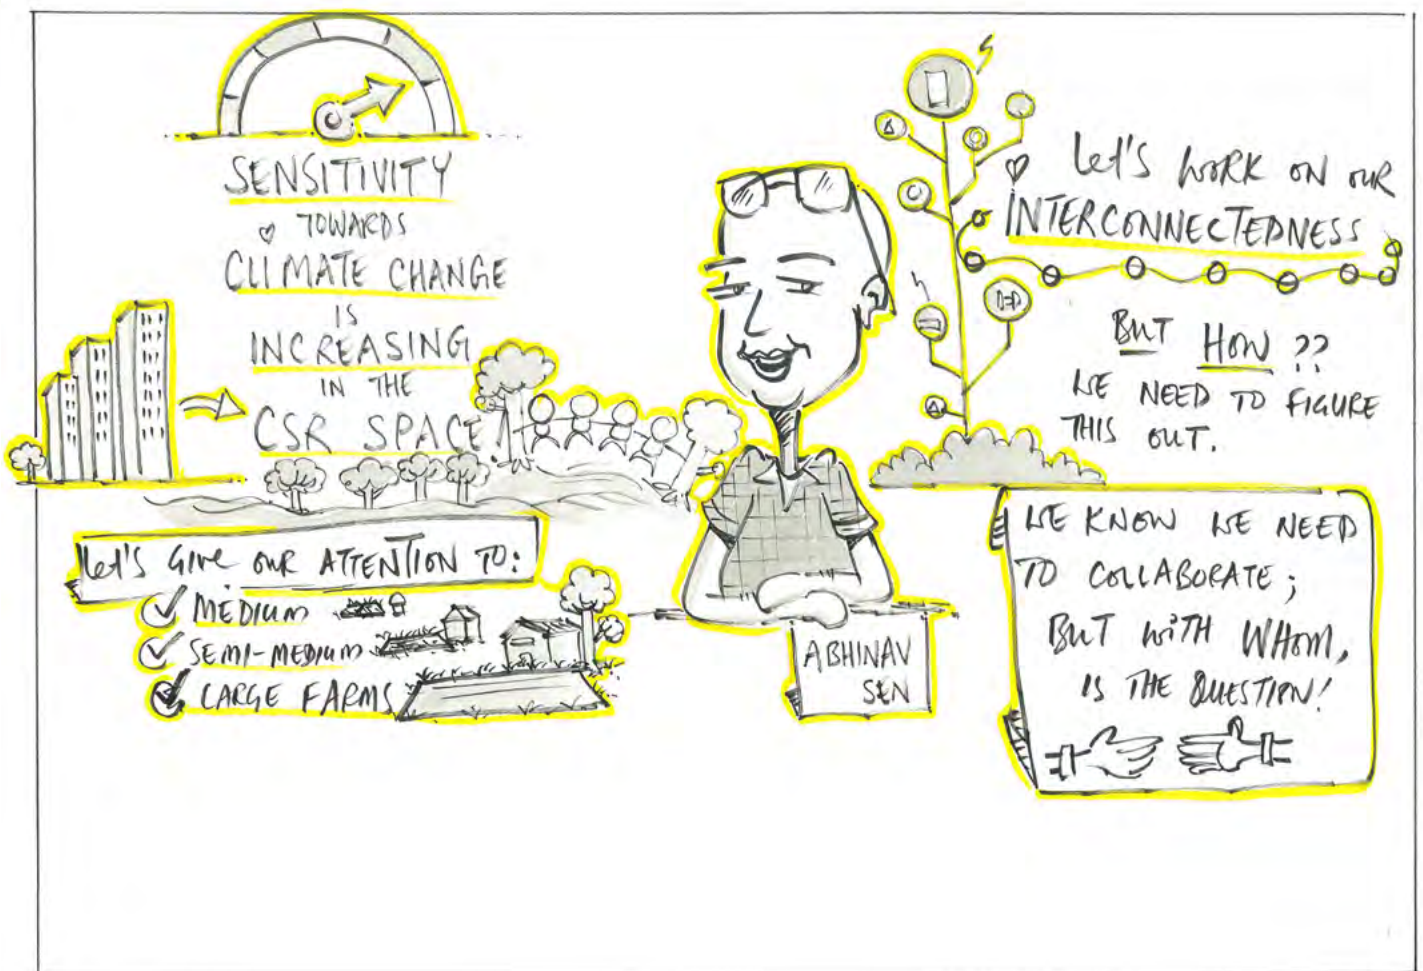 SENSITIVITY
TOWARDS
CLIMATE CHANGE
IS
INCREASING
IN THE
CSR SPACE!
Let's GIVE OUR ATTENTION TO:
MEDIUM
SEMI-MEDIUM
LARGE FARMS
ABHINAV
SEN
Let's WORK ON OUR
INTERCONNECTEDNESS
BUT HOW ??
WE NEED TO FIGURE
THIS OUT.
WE KNOW WE NEED
TO COLLABORATE;
BUT WITH WHOM,
IS THE QUESTION!